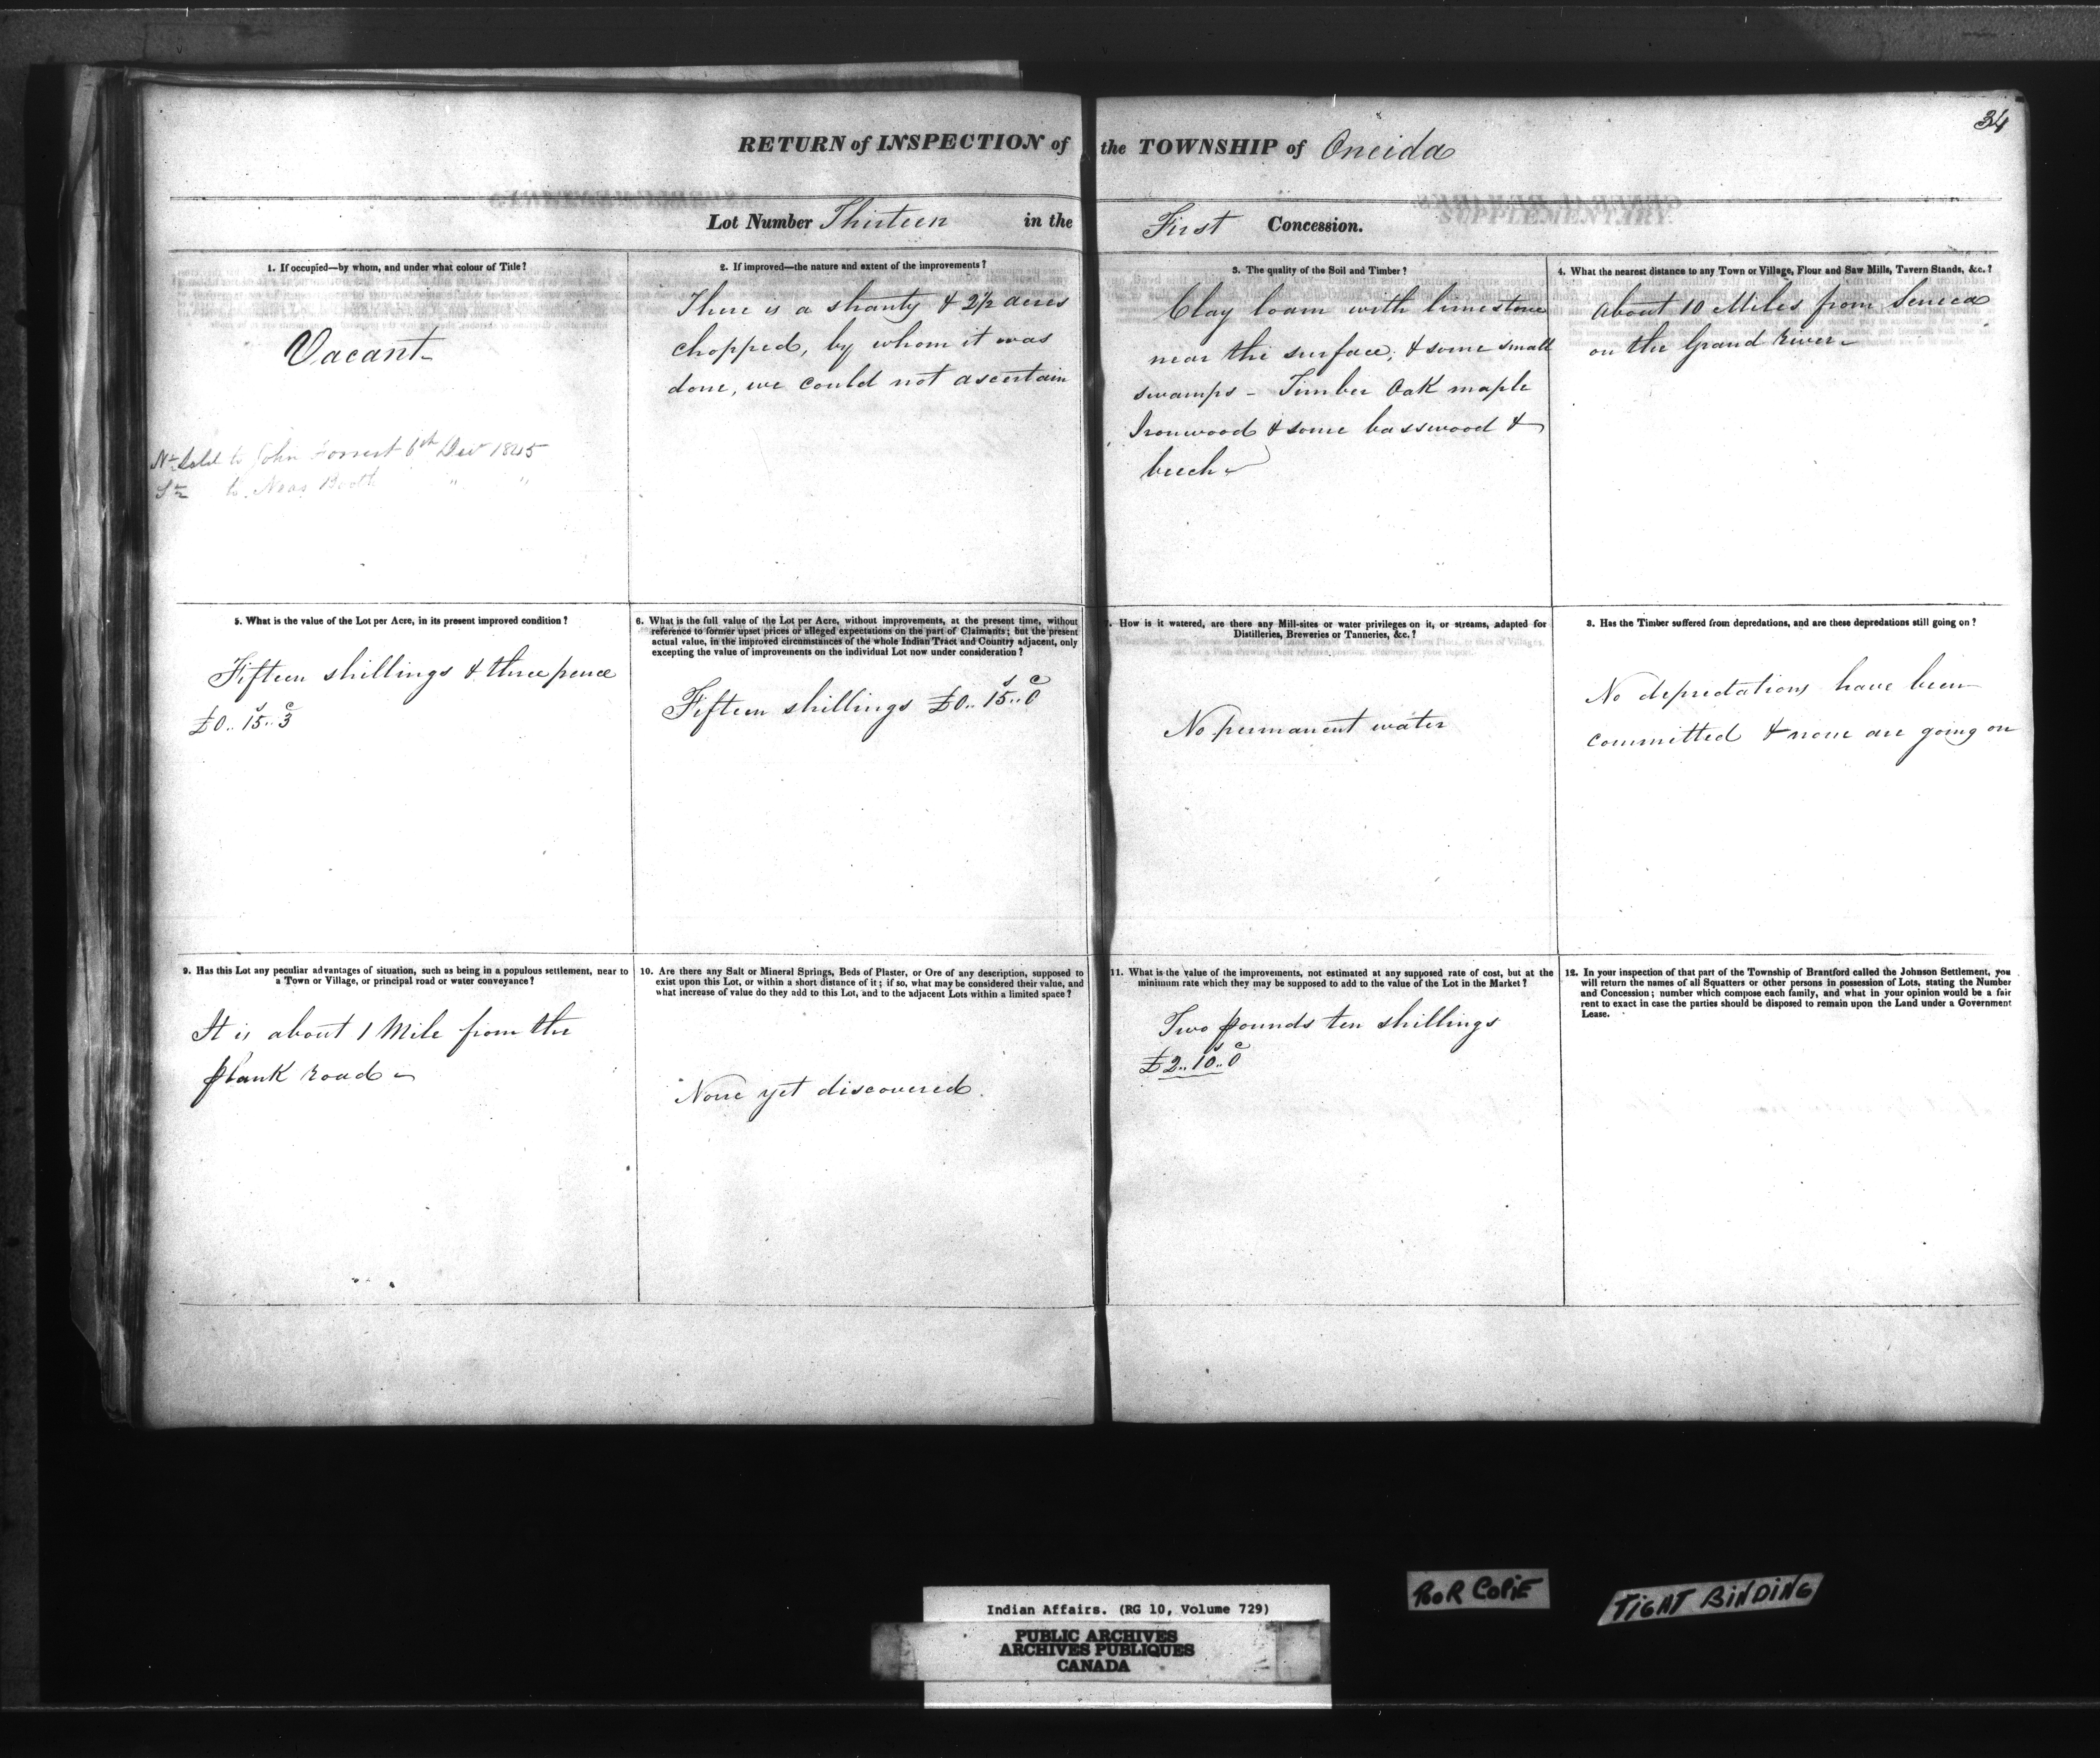 34
RETURN of INSPECTION of the TOWNSHIP of Oneida
Lot Number Thirteen in the First Concession.
1. If occupied—by whom, and under what colour of Title?
Vacant
Sold to John Forrest 6th Dec 1845
to Booth " "
2. If improved—the nature and extent of the improvements?
There is a shanty & 2½ acres
chopped, by whom it was
done, we could not ascertain
3. The quality of the Soil and Timber?
Clay loam with limestone
near the surface, & some small
swamps - Timber Oak maple
Ironwood & some basswood &
beech
4. What the nearest distance to any Town or Village, Flour and Saw Mills, Tavern Stands, &c.?
About 10 Miles from Seneca
on the Grand River
5. What is the value of the Lot per Acre, in its present improved condition?
Fifteen shillings & three pence
£0.. 15.. 3
6. What is the full value of the Lot per Acre, without improvements, at the present time, without
reference to former upset prices or alleged expectations on the part of Claimants; but the present
actual value, in the improved circumstances of the whole Indian Tract and Country adjacent, only
excepting the value of improvements on the individual Lot now under consideration?
Fifteen shillings £0.. 15.. 0
How is it watered, are there any Mill-sites or water privileges on it, or streams, adapted for
Distilleries, Breweries or Tanneries, &c.?
No permanent water
8. Has the Timber suffered from depredations, and are these depredations still going on?
No depredations have been
committed & none are going on
9. Has this Lot any peculiar advantages of situation, such as being in a populous settlement, near to
a Town or Village, or principal road or water conveyance?
It is about 1 Mile from the
plank road
10. Are there any Salt or Mineral Springs, Beds of Plaster, or Ore of any description, supposed to
exist upon this Lot, or within a short distance of it; if so, what may be considered their value, and
what increase of value do they add to this Lot, and to the adjacent Lots within a limited space?
None yet discovered.
11. What is the value of the improvements, not estimated at any supposed rate of cost, but at the
minimum rate which they may be supposed to add to the value of the Lot in the Market?
Two pounds ten shillings
£2.. 10.. 0
12. In your inspection of that part of the Township of Brantford called the Johnson Settlement, you
will return the names of all Squatters or other persons in possession of Lots, stating the Number
and Concession; number which compose each family, and what in your opinion would be a fair
rent to exact in case the parties should be disposed to remain upon the Land under a Government
Lease.
POOR COPIE
TIGHT BINDING
Indian Affairs. (RG 10, Volume 729)
PUBLIC ARCHIVES
ARCHIVES PUBLIQUES
CANADA